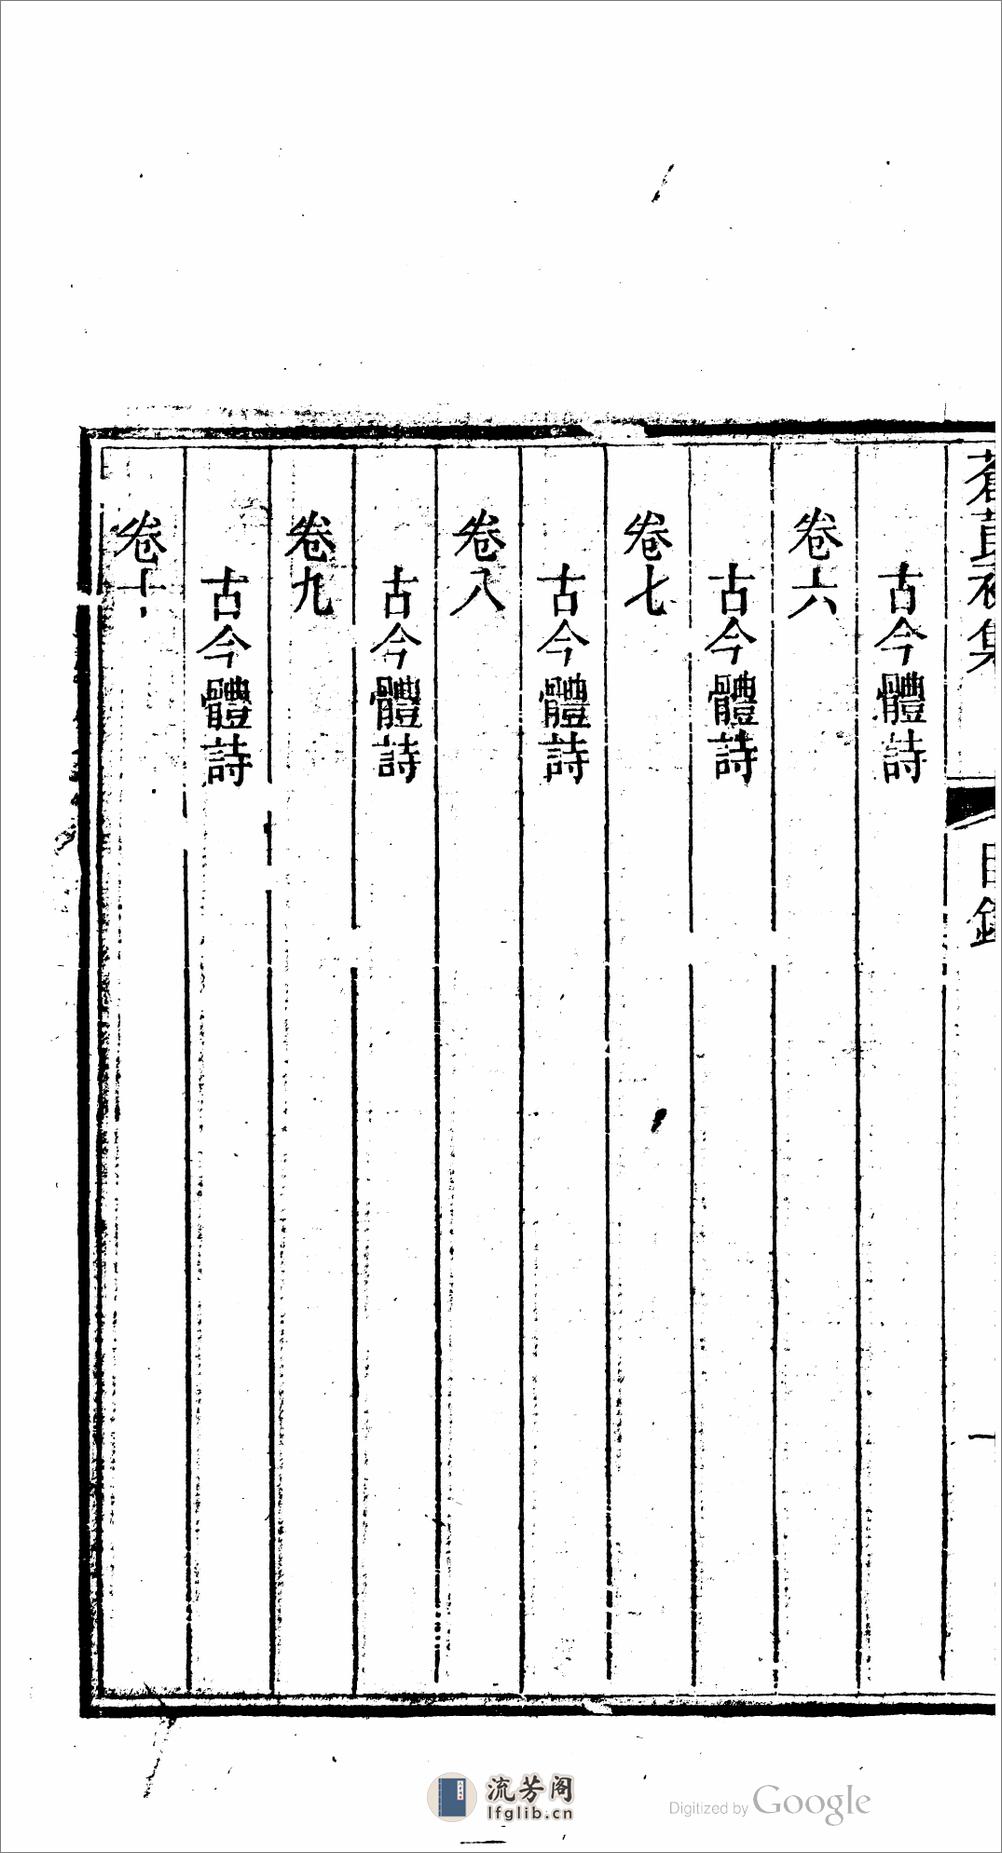 古今體詩
卷六
古今體詩
卷七
古今體詩
卷八
古今體詩
卷九
古今體詩
卷十
目錄
一
流芳阁
lfglib.cn
Digitized by Google